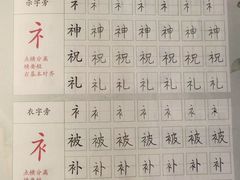 示字旁
礻 礻 礻 礻 礻 礻 礻
礻
点横分离
横要短
右基本对齐
神 神 神 神 神 神 神
祝 祝 祝 祝 祝 祝 祝
礼 礼 礼 礼 礼 礼 礼
衣字旁
衤 衤 衤 衤 衤 衤 衤
衤
点横分离
横要短
被 被 被 被 被 被 被
补 补 补 补 补 补 补